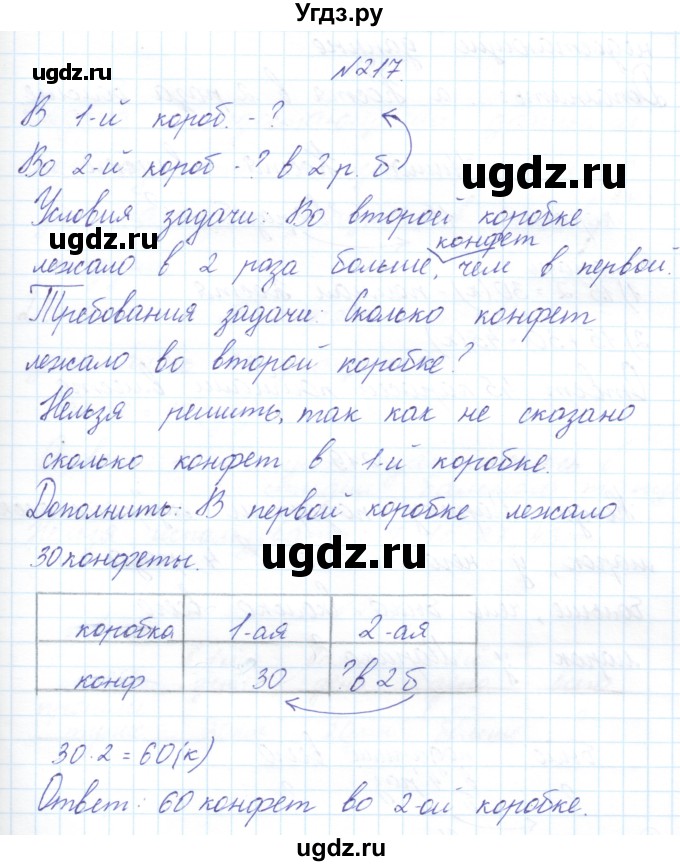 Угдз.ру
ugdz.ru
№217.
В 1-й короб. - ?
ugdz.ru
Во 2-й короб - ? в 2 р. б
Условия задачи: Во второй коробке
ugdz.ru
конфет
лежало в 2 раза больше, чем в первой.
Требования задачи: Сколько конфет
лежало во второй коробке?
Нельзя решить, так как не сказано
сколько конфет в 1-й коробке.
Дополнить: В первой коробке лежало
ugdz.ru
30 конфеты.
коробка 1-ая 2-ая
конф 30 ? в 2 б
30 · 2 = 60 (к)
ugdz.ru
Ответ: 60 конфет во 2-ой коробке.
Угдз.ру